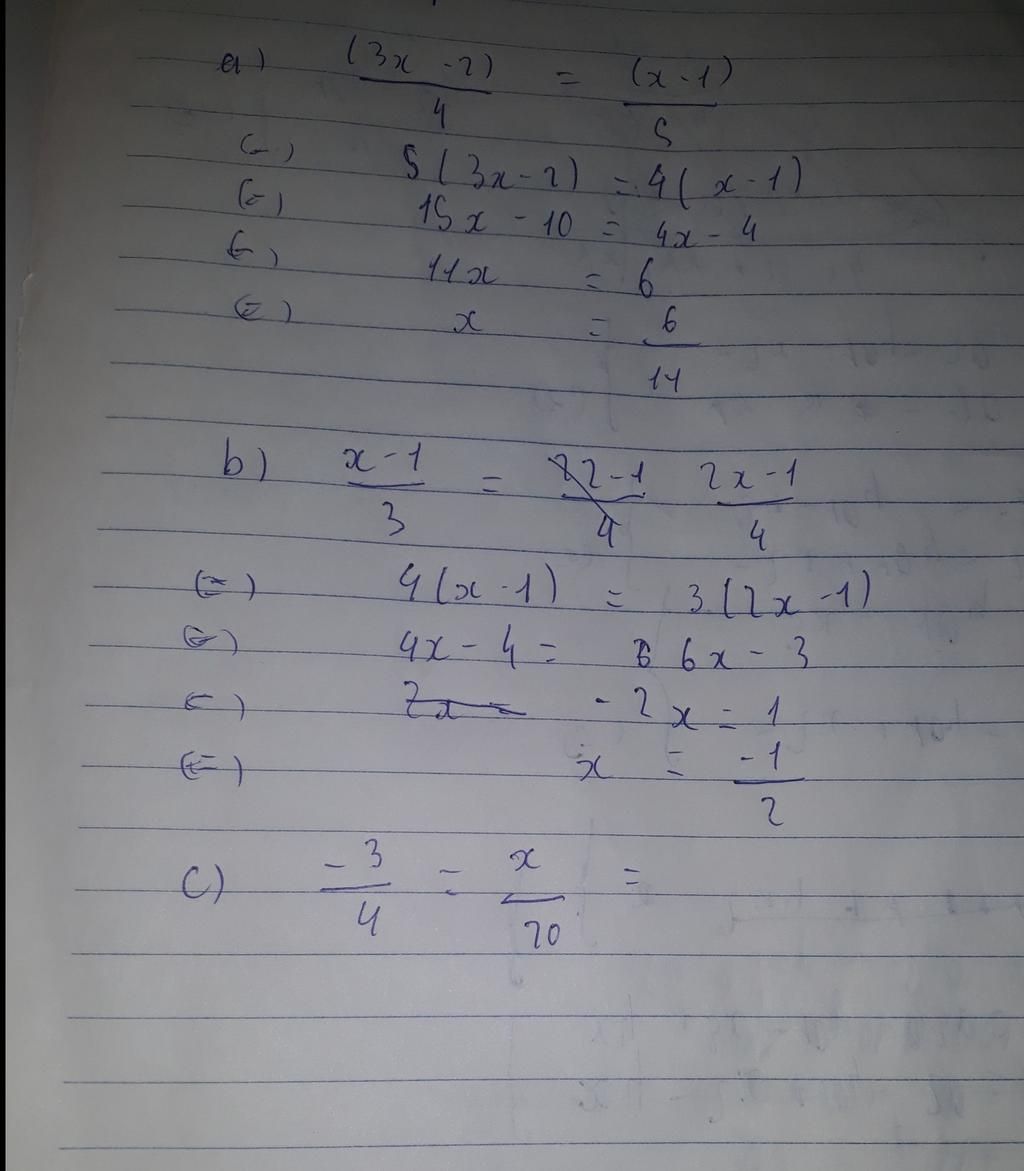 a) (3x - 2)/4 = (x - 1)/5
(=) 5(3x - 2) = 4(x - 1)
(=) 15x - 10 = 4x - 4
(=) 11x = 6
(=) x = 6/11
b) x - 1/3 = 22 - 1/4 2x - 1/4
(=) 4(x - 1) = 3(2x - 1)
(=) 4x - 4 = 6x - 3
(=) 2x = - 2x = 1
(=) x = -1/2
c) -3/4 = x/20 =